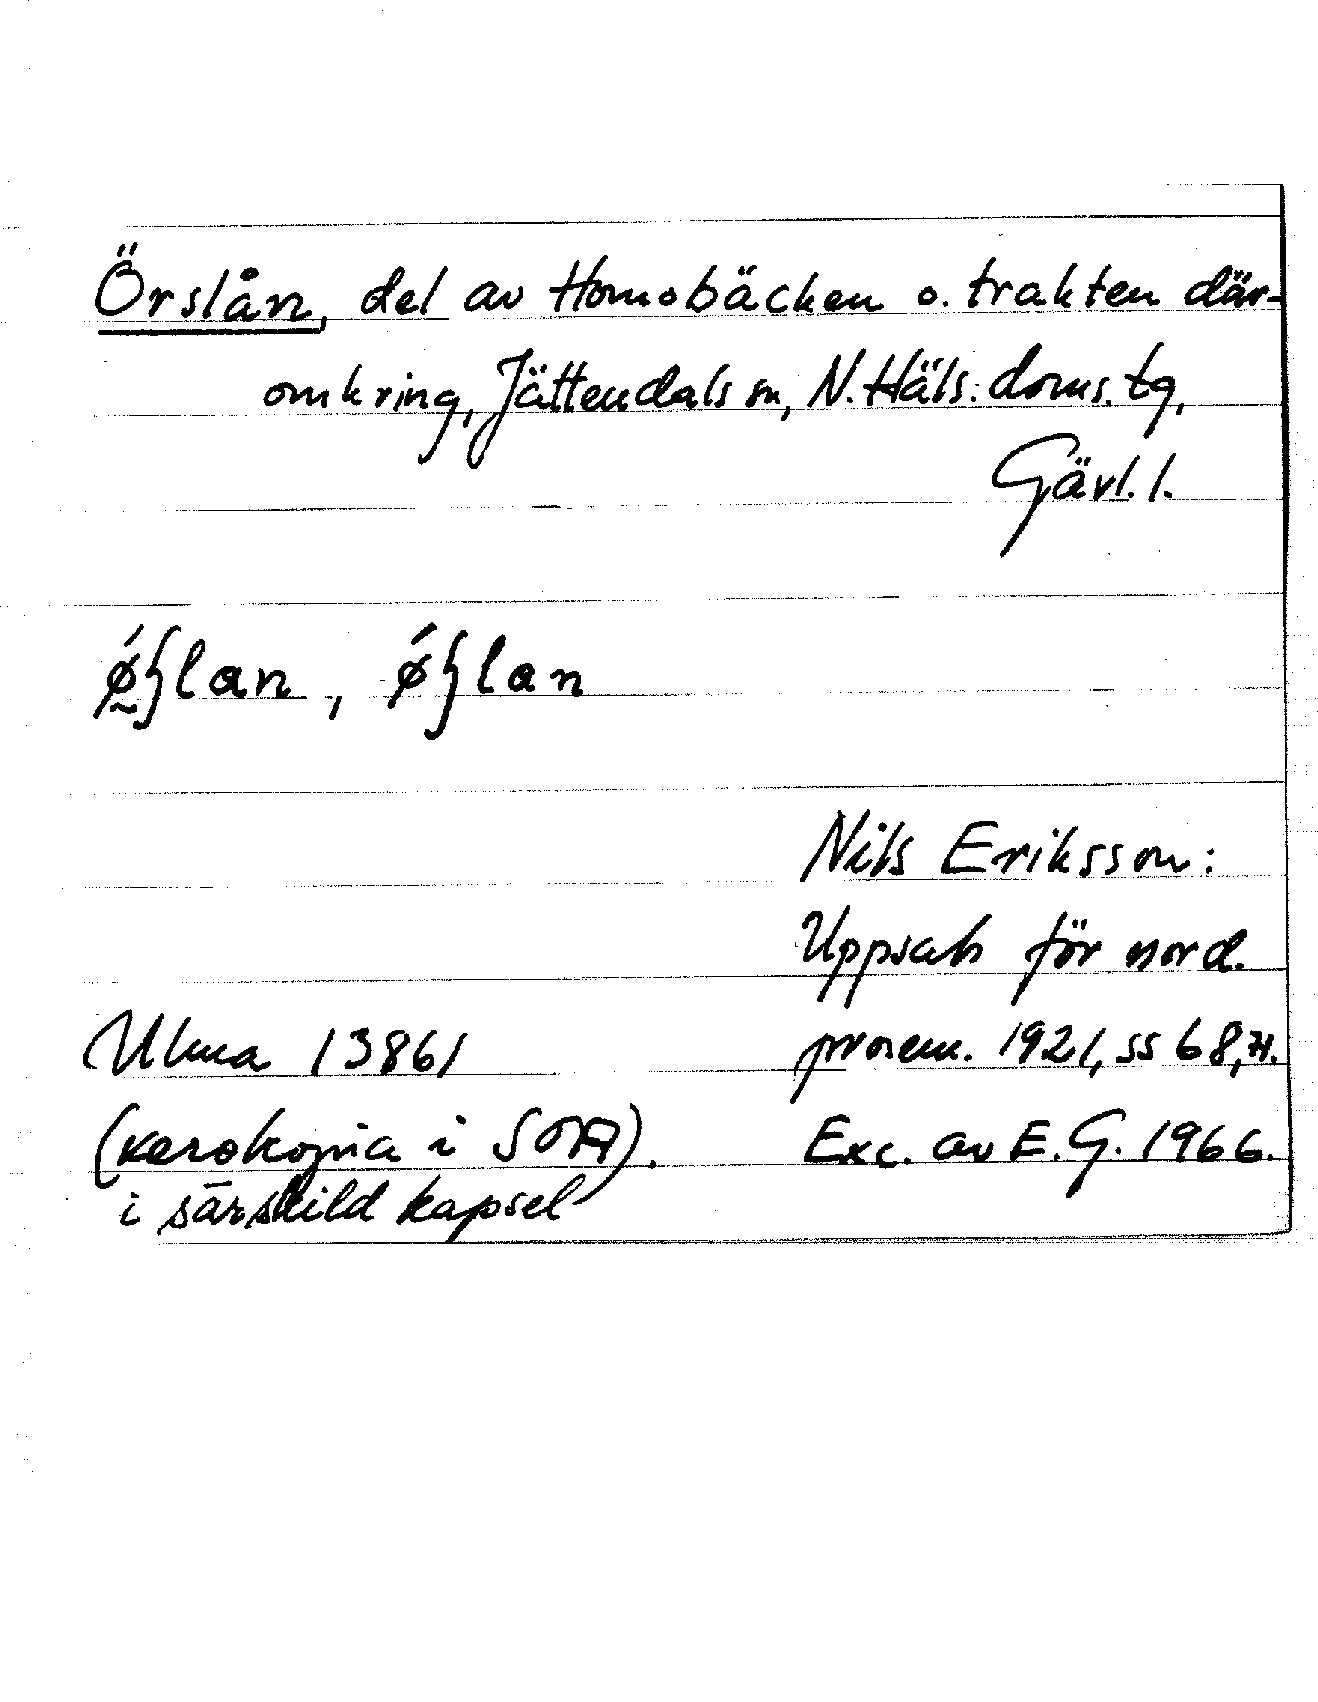 Örslån, del av Homobäcken o. trakten där-
omkring, Jättendals sn, N. Häls. doms. tg,
Gävl. l.
lan, lan
Nils Eriksson:
Uppsats för nord.
prosem. 1921, ss 68, 71.
Ulma 13861
(xerokopia i SOA).
Exc. av E. G. 1966.
i särskild kapsel